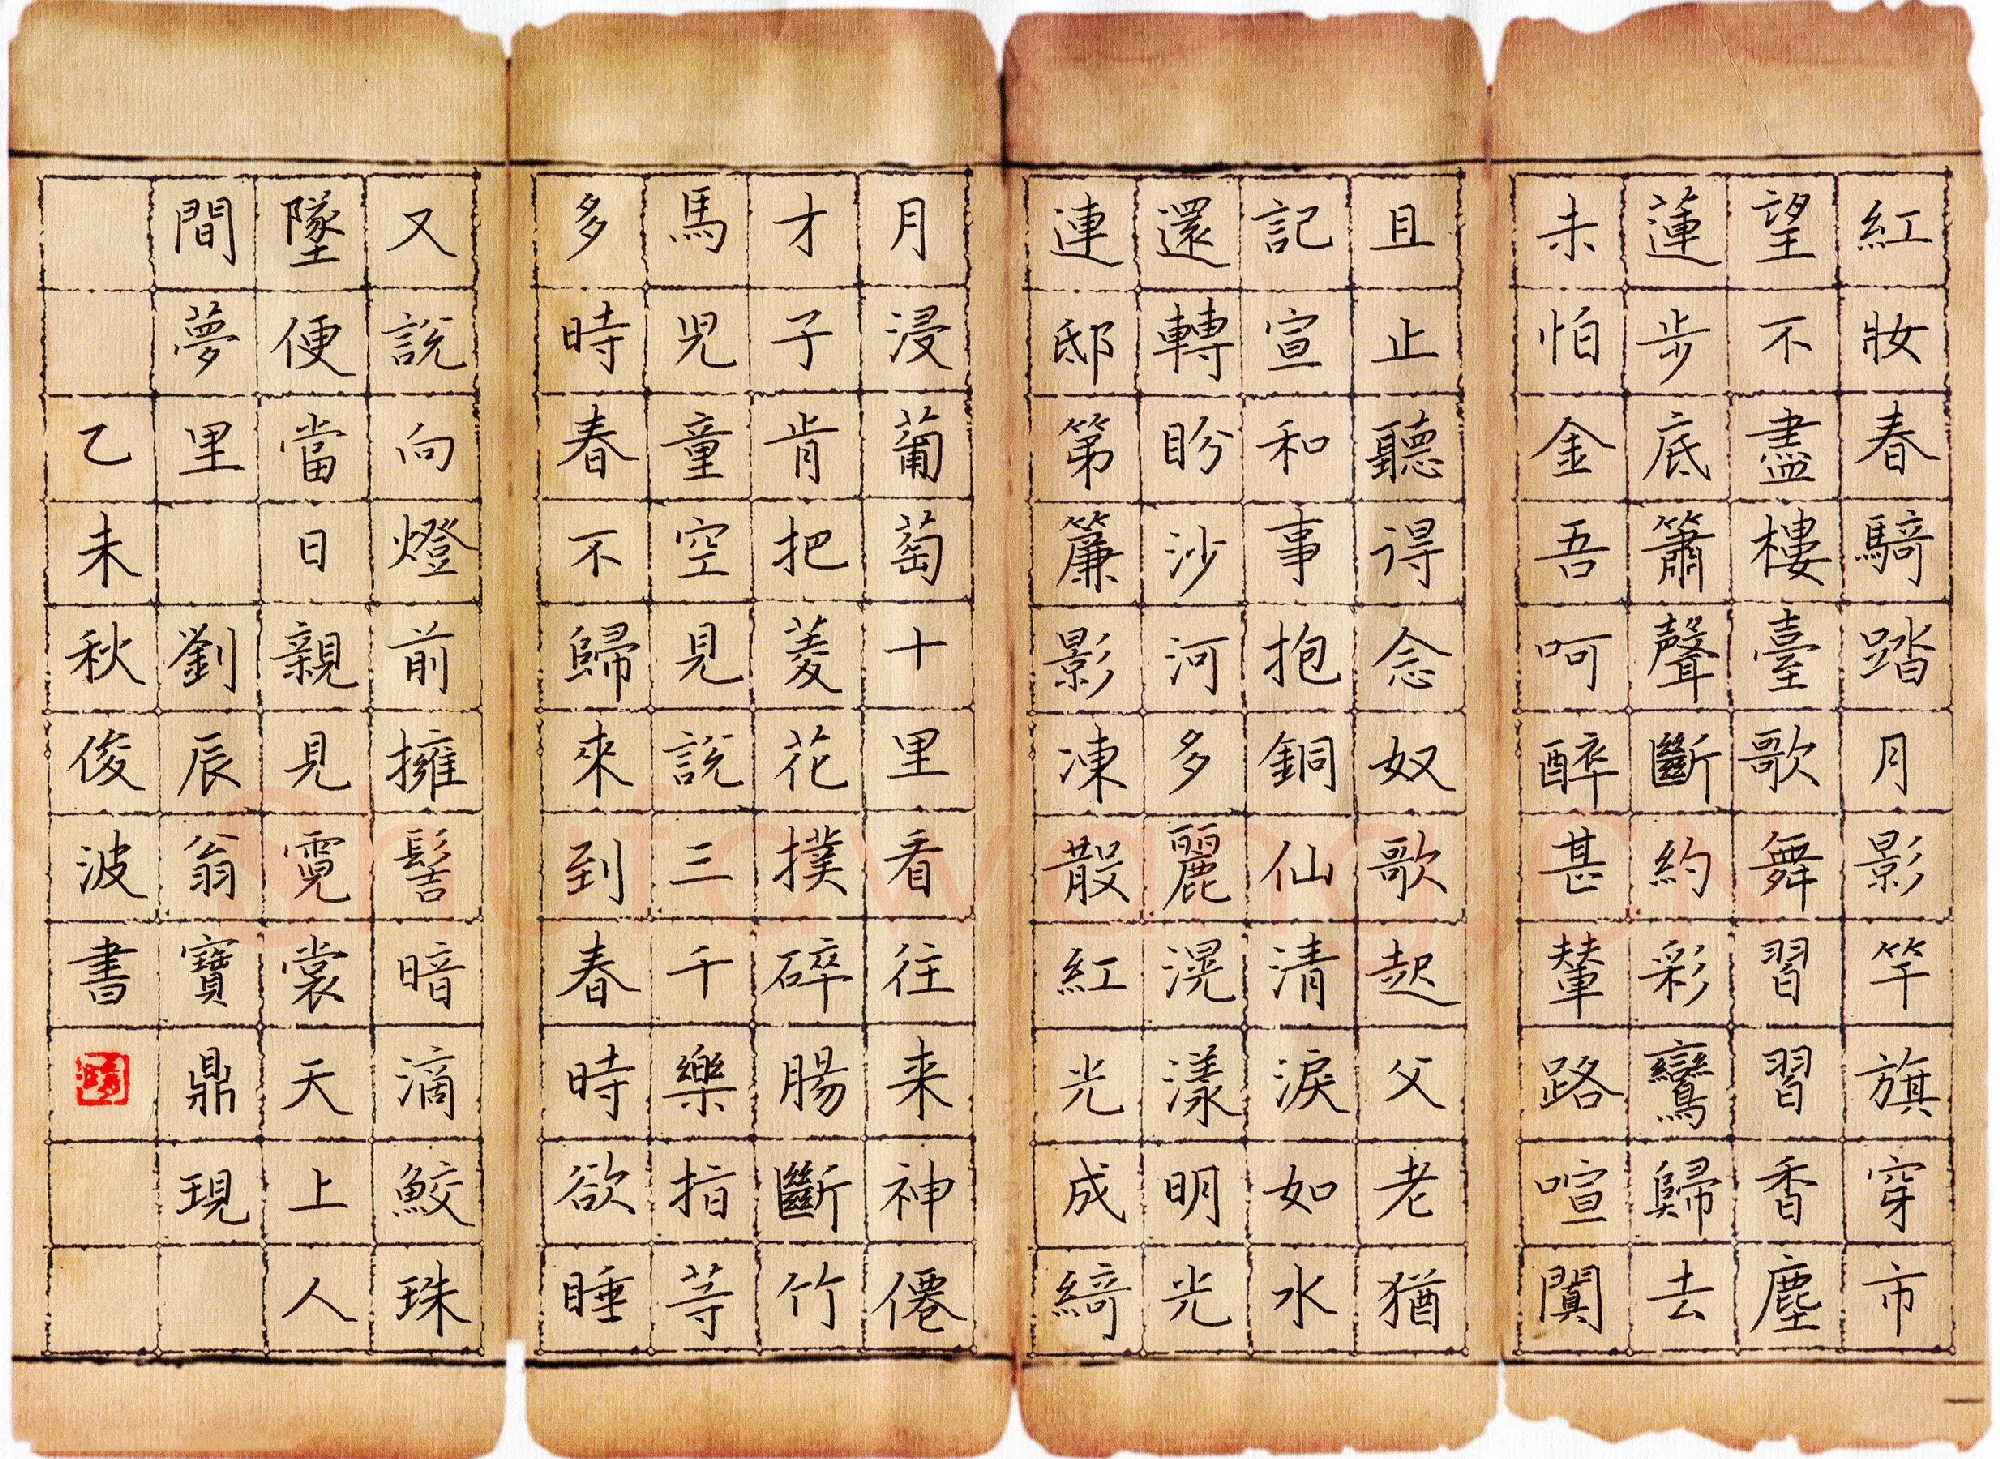 紅妝春騎踏月影竿旗穿市
望不盡樓臺歌舞習習香塵
蓮步底簫聲斷約彩鸞歸去
未怕金吾呵醉甚輦路喧闐
且止聽得念奴歌起父老猶
記宣和事抱銅仙清淚如水
還轉盼沙河多麗滉漾明光
連邸第簾影凍散紅光成綺
月浸葡萄十里看往来神僊
才子肯把菱花撲碎腸斷竹
馬児童空見說三千樂指等
多時春不歸來到春時欲睡
又說向燈前擁髻暗滴鮫珠
墜便當日親見霓裳天上人
間夢里 劉辰翁寶鼎現
乙未秋俊波書